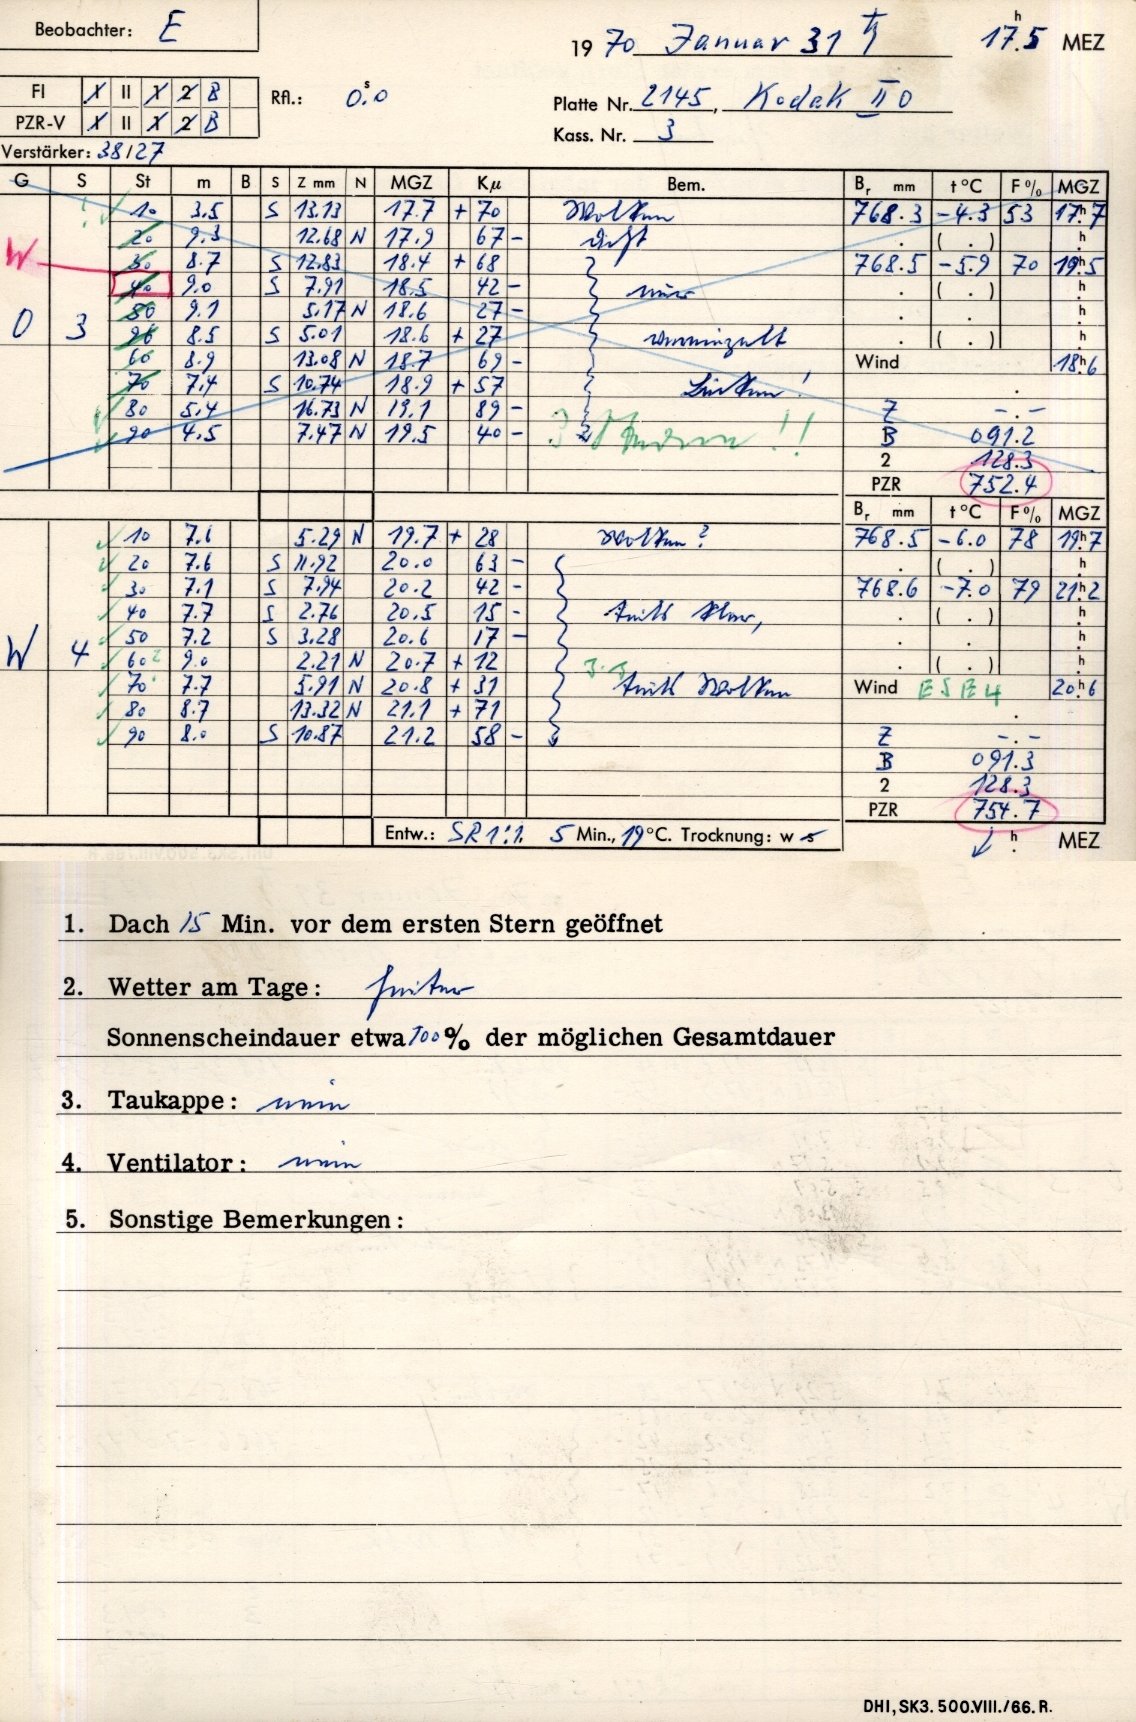 Beobachter: E
1970 Januar 31 ♄ 17.5 h MEZ
FI X II X 2 B Rfl.: 0.s0
Platte Nr. 2145, Kodak II O
PZR-V X II X 2 B
Kass. Nr. 3
Verstärker: 38/27
G S St m B S Z mm N MGZ Kμ Bem. Br mm t °C F % MGZ
10 3.5 S 13.13 17.7 + 70 Wolken 768.3 -4.3 53 17h.7
20 9.3 12.68 N 17.9 67 - dicht . ( . ) h
W 30 8.7 S 12.83 18.4 + 68 768.5 -5.9 70 19h.5
40 9.0 S 7.91 18.5 42 - nur . ( . ) h
O 3 50 9.1 5.17 N 18.6 27 - . . h
8.5 S 5.01 18.6 + 27 vereinzelt . ( . ) h
60 8.9 13.08 N 18.7 69 - Wind 18h.6
70 7.4 S 10.74 18.9 + 57 Lücken! .
80 5.4 16.73 N 19.1 89 - Z -.-
90 4.5 7.47 N 19.5 40 - 3 Sterne!! B 091.2
2 128.3
PZR 752.4
Br mm t °C F % MGZ
10 7.6 5.29 N 19.7 + 28 Wolken? 768.5 -6.0 78 19h.7
20 7.6 S 11.92 20.0 63 - . ( . ) h
30 7.1 S 7.94 20.2 42 - 768.6 -7.0 79 21h.2
40 7.7 S 2.76 20.5 15 - teils klar, . ( . ) h
50 7.2 S 3.28 20.6 17 - . . h
W 4 60 9.0 2.21 N 20.7 + 12 . ( . ) h
70 7.7 5.91 N 20.8 + 31 teils Wolken Wind ESE4 20h.6
80 8.7 13.32 N 21.1 + 71 .
90 8.0 S 10.87 21.2 58 - Z -.-
B 091.3
2 128.3
PZR 754.7
Entw.: SR 1:1. 5 Min., 19°C. Trocknung: w h MEZ
1. Dach 15 Min. vor dem ersten Stern geöffnet
2. Wetter am Tage: heiter
Sonnenscheindauer etwa 100 % der möglichen Gesamtdauer
3. Taukappe: nein
4. Ventilator: nein
5. Sonstige Bemerkungen:
DHI, SK3. 500.VIII./66. R.